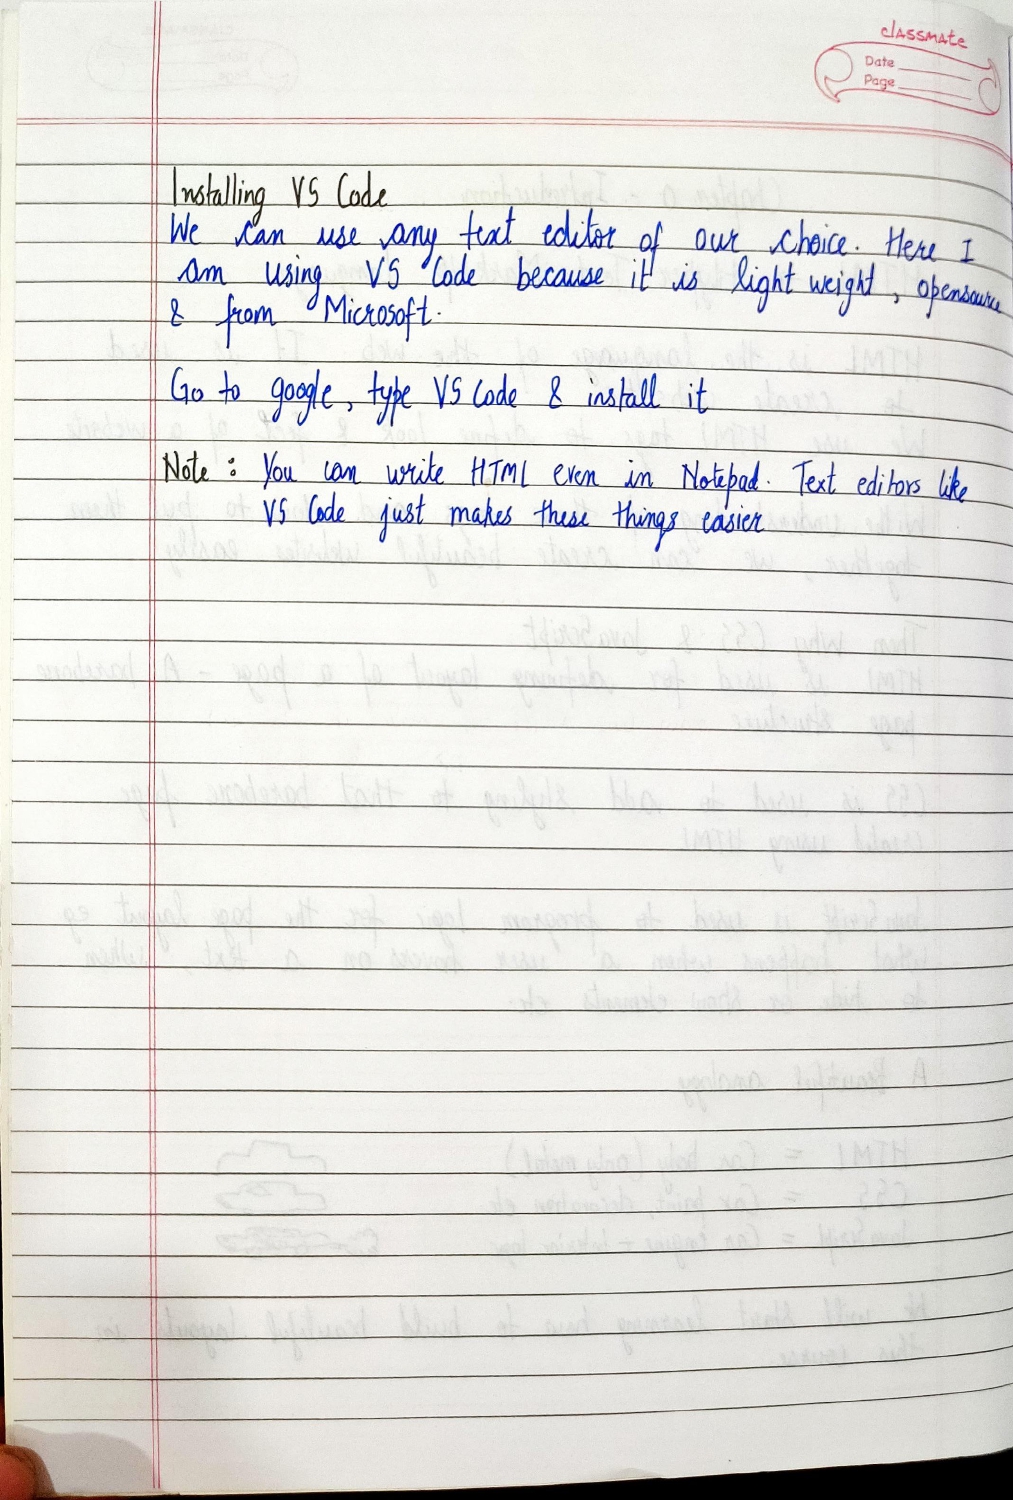 classmate
Date
Page
Installing VS Code
We can use any text editor of our choice. Here I
am using VS Code because it is light weight, opensource
& from Microsoft.
Go to google, type VS Code & install it
Note: You can write HTML even in Notepad. Text editors like
VS Code just makes these things easier